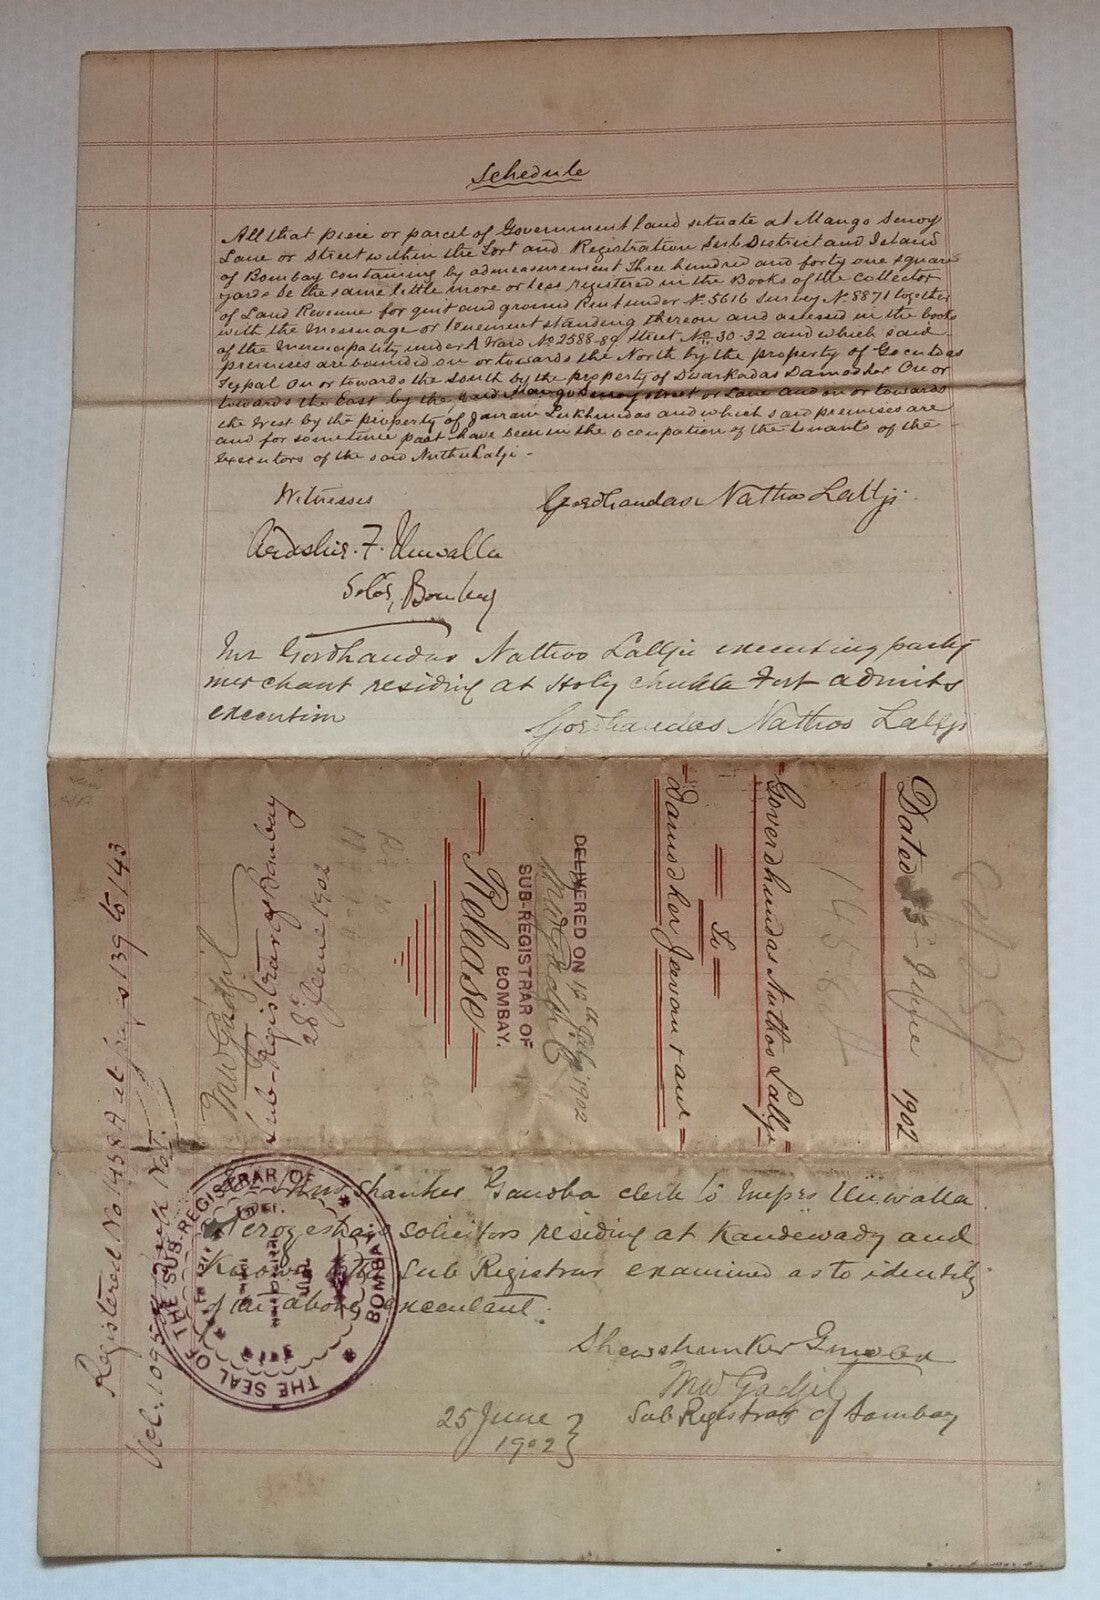 Schedule
All that piece or parcel of Government land situate at Mango Seroy
Lane or street within the Fort and Registration Sub District and Island
of Bombay containing by admeasurement Three hundred and forty one square
yards be the same little more or less registered in the Books of the Collector
of Land Revenue for quit and ground Rent under No. 5616 Survey No. 8871 together
with the Messuage or tenement standing thereon and assessed in the books
of the Municipality under A Ward No. 2588-89 Street No. 30-32 and which said
premises are bounded on or towards the North by the property of Gocculdas
Tejpal On or towards the South by the property of Dwarkadas Damodher On or
towards the East by the said Mango Seroy street or Lane and on or towards
the West by the property of Jairam Lukhmidas and which said premises are
and for sometime past have been in the occupation of the tenants of the
executors of the said Nuthu Lalji -
Witnesses
Gordhandas Nathoo Lallji
Ardeshir. F. Unwalla
Solr, Bombay
Mr Gordhandas Nathoo Lallji executing party
merchant residing at Holy chukla Fort admits
execution
Gordhandas Nathoo Lallji
Dated - June 1902
Goverdhundas Nuthoo Lallji
To
Damodhor Jevan and
DELIVERED ON 12th July 1902
MW Gadgil
SUB-REGISTRAR OF
BOMBAY.
Release
MW Gadgil
Sub-Registrar of Bombay
28th June 1902
Registered No 1458A at pages 139 to 143
Vol. 1095 Book No I.
THE SEAL OF THE SUB REGISTRAR OF BOMBAY
Shanker Ganoba clerk to Messrs Unwalla
solicitors residing at Kandewady and
Known to the Sub Registrar examined as to identity
of the above executant.
Shewshunker Ganoba
MW Gadgil
Sub Registrar of Bombay
25 June
1902